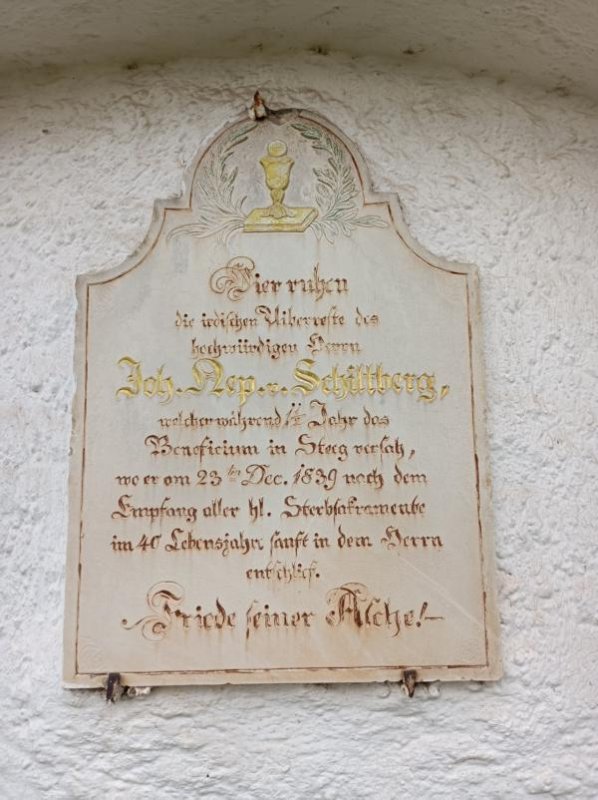 Hier ruhen
die irdischen Uiberreste des
hochwürdigen Herrn
Joh. Nep. v. Schiltberg,
welcher während Jahr das
Beneficium in Steeg versah,
wo er am 23ten Dec. 1839 nach dem
Empfang aller hl. Sterbsakramente
im 40 Lebensjahre sanft in dem Herrn
entschlief.
Friede seiner Asche!-